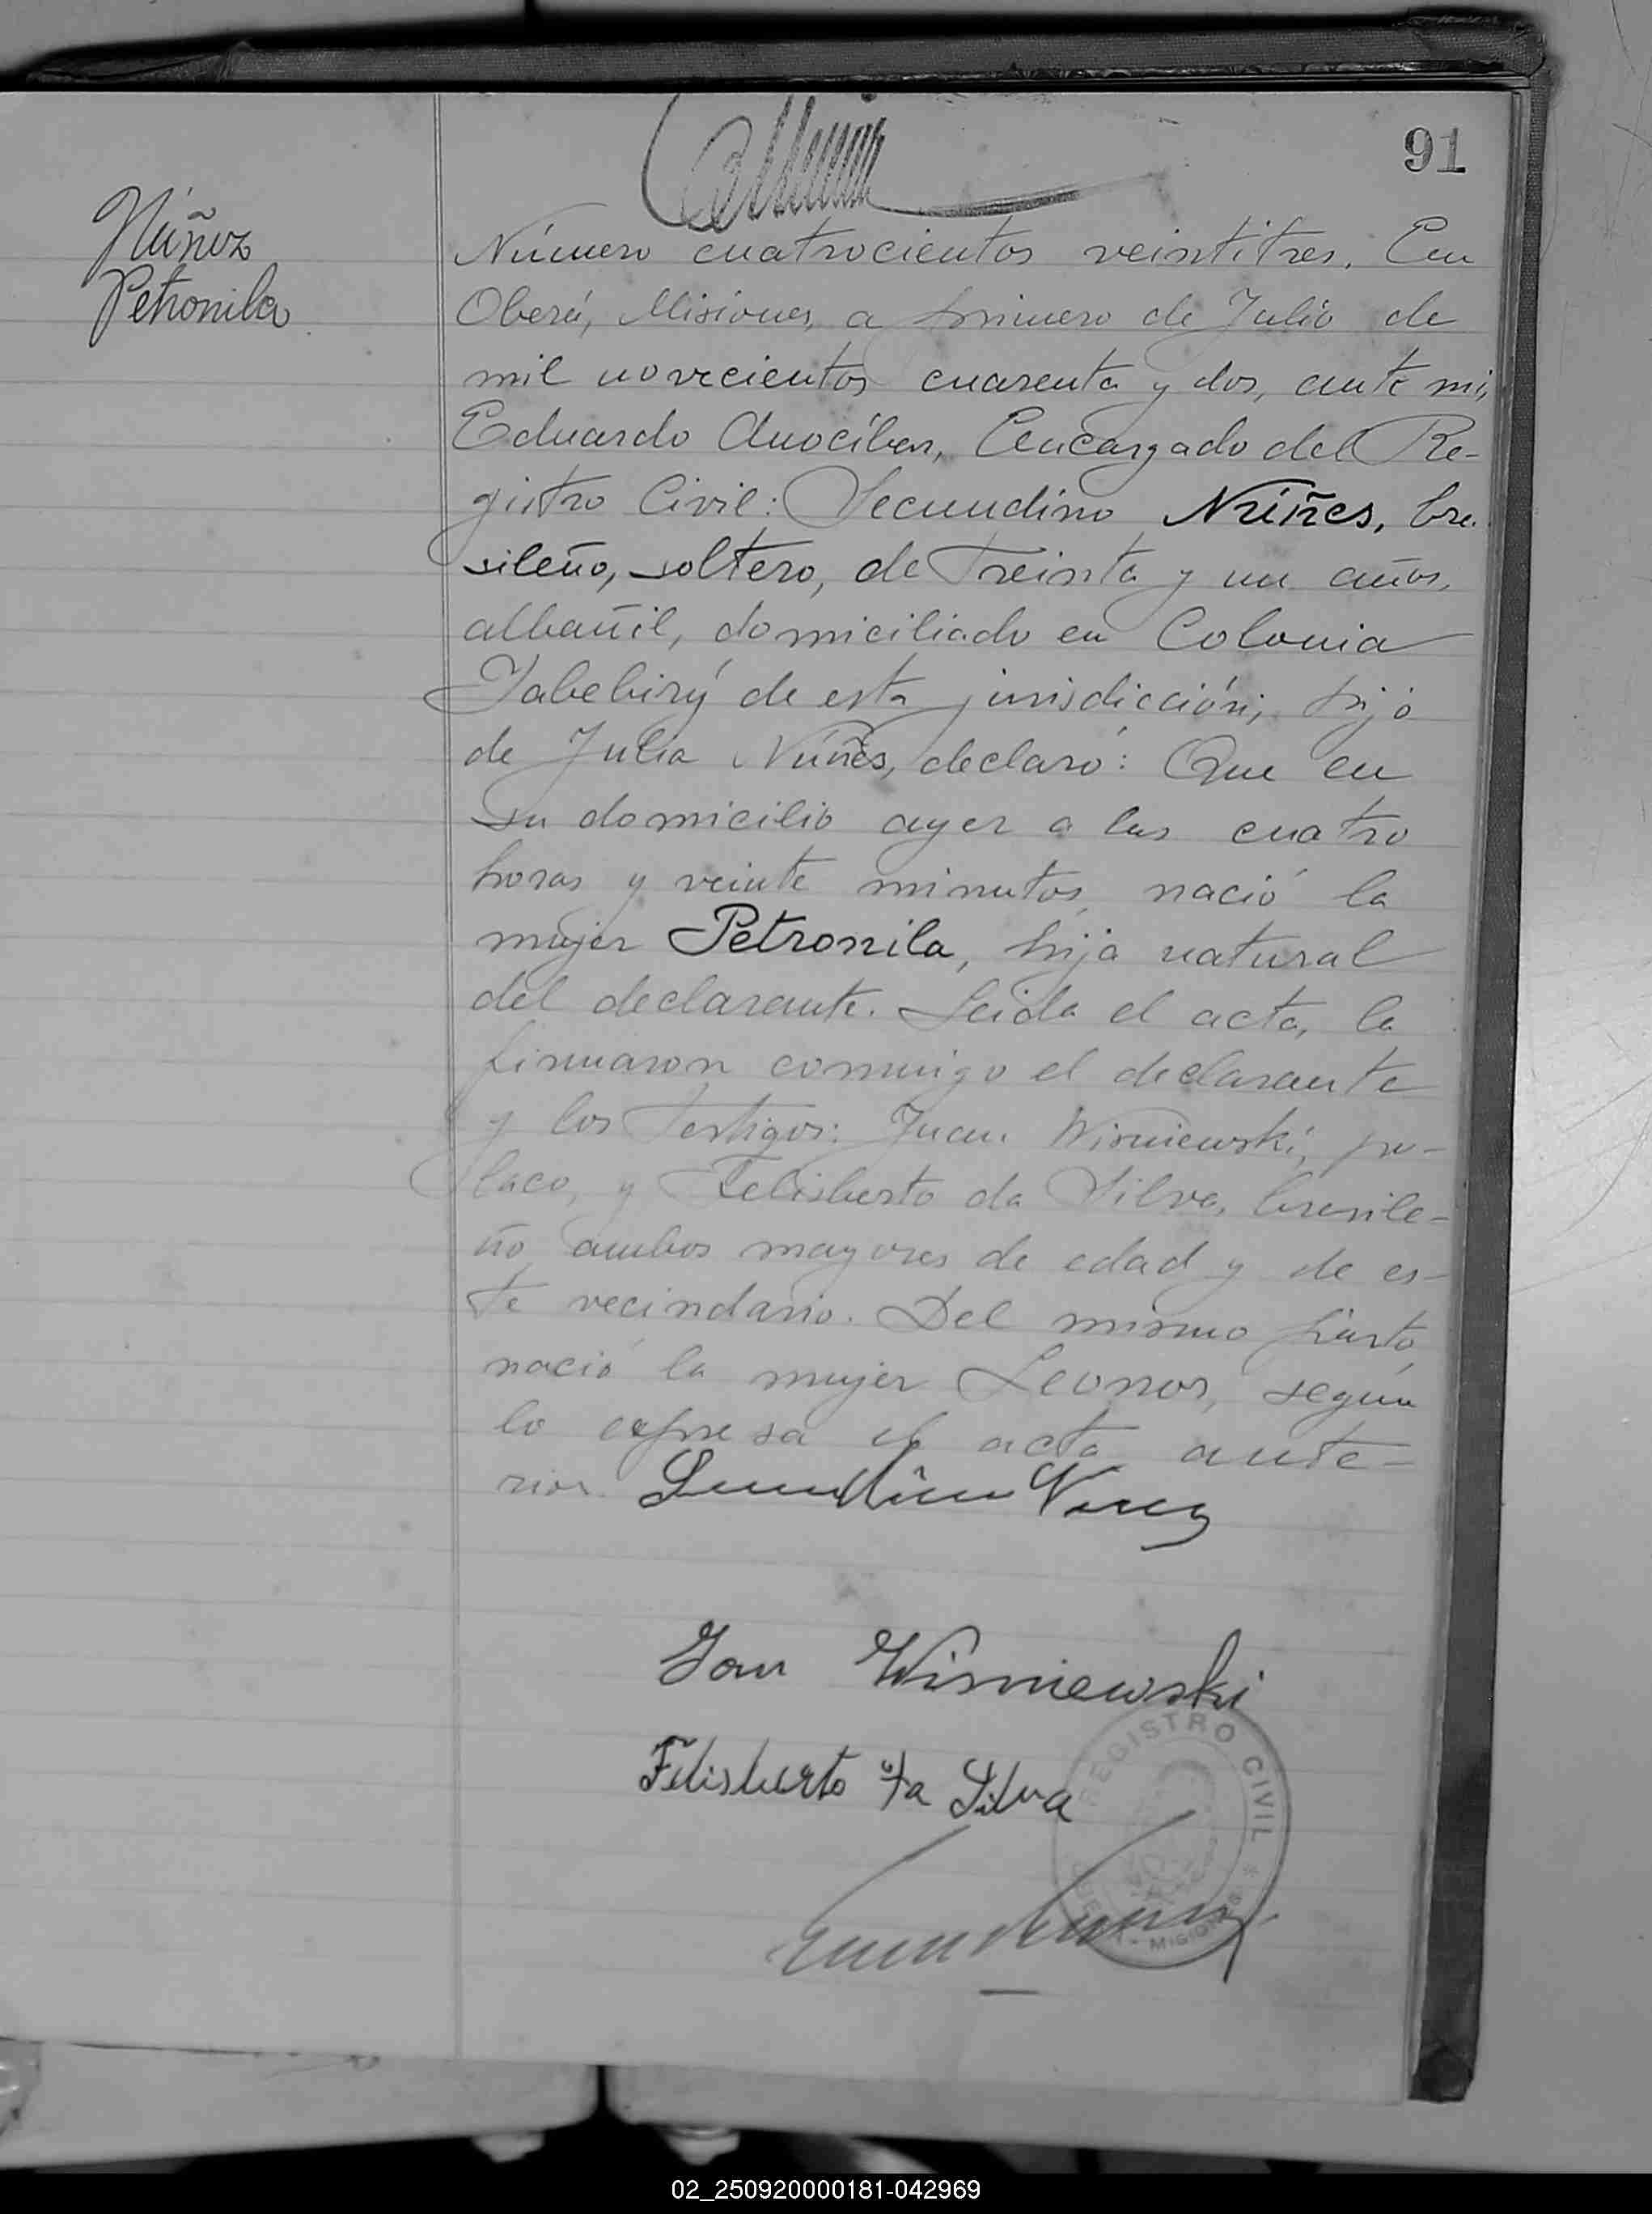 91
Núñez
Petronila
Número cuatrocientos veintitres. En
Oberá, Misiones, a primero de Julio de
mil novecientos cuarenta y dos, ante mi,
Eduardo Anocíbar, Encargado del Re-
gistro Civil: Secundino Núñes, bra-
sileño, soltero, de treinta y un años,
albañil, domiciliado en Colonia
Yabebirý de esta jurisdicción, hijo
de Julia Núñes, declaró: Que en
su domicilio ayer a las cuatro
horas y veinte minutos, nació la
mujer Petronila, hija natural
del declarante. Leida el acta, la
firmaron conmigo el declarante
y los testigos: Juan Wisniewski, po-
laco, y Felisberto da Silva, brasile-
ño, ambos mayores de edad y de es-
te vecindario. Del mismo parto,
nació la mujer Leonor, según
lo expresa el acta ante-
rior.
Jan Wisniewski
Felisberto da Silva
REGISTRO CIVIL
MISIONES
02_250920000181-042969